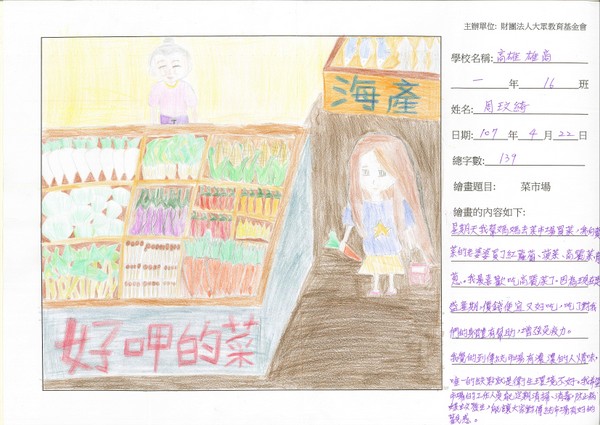 主辦單位: 財團法人大眾教育基金會
學校名稱: 高雄 雄商
一 年 16 班
姓名: 周玟綺
日期: 107 年 4 月 22 日
總字數: 139
繪畫題目: 菜市場
繪畫的內容如下:
星期天我幫媽媽去菜市場買菜,
菜的老婆婆買了紅蘿蔔、菠菜、高麗菜
蔥。我最喜歡吃高麗菜了。因為現在是
盛暑期,價錢便宜又好吃,吃了對我
們的身體有幫助,增強免疫力。
我覺的到傳統市場有濃濃的人情味,
唯一的缺點就是衛生環境不好。我希望
市場的工作人員能定期清掃、消毒,
能讓大家對傳統市場有好的
海產
好呷的菜